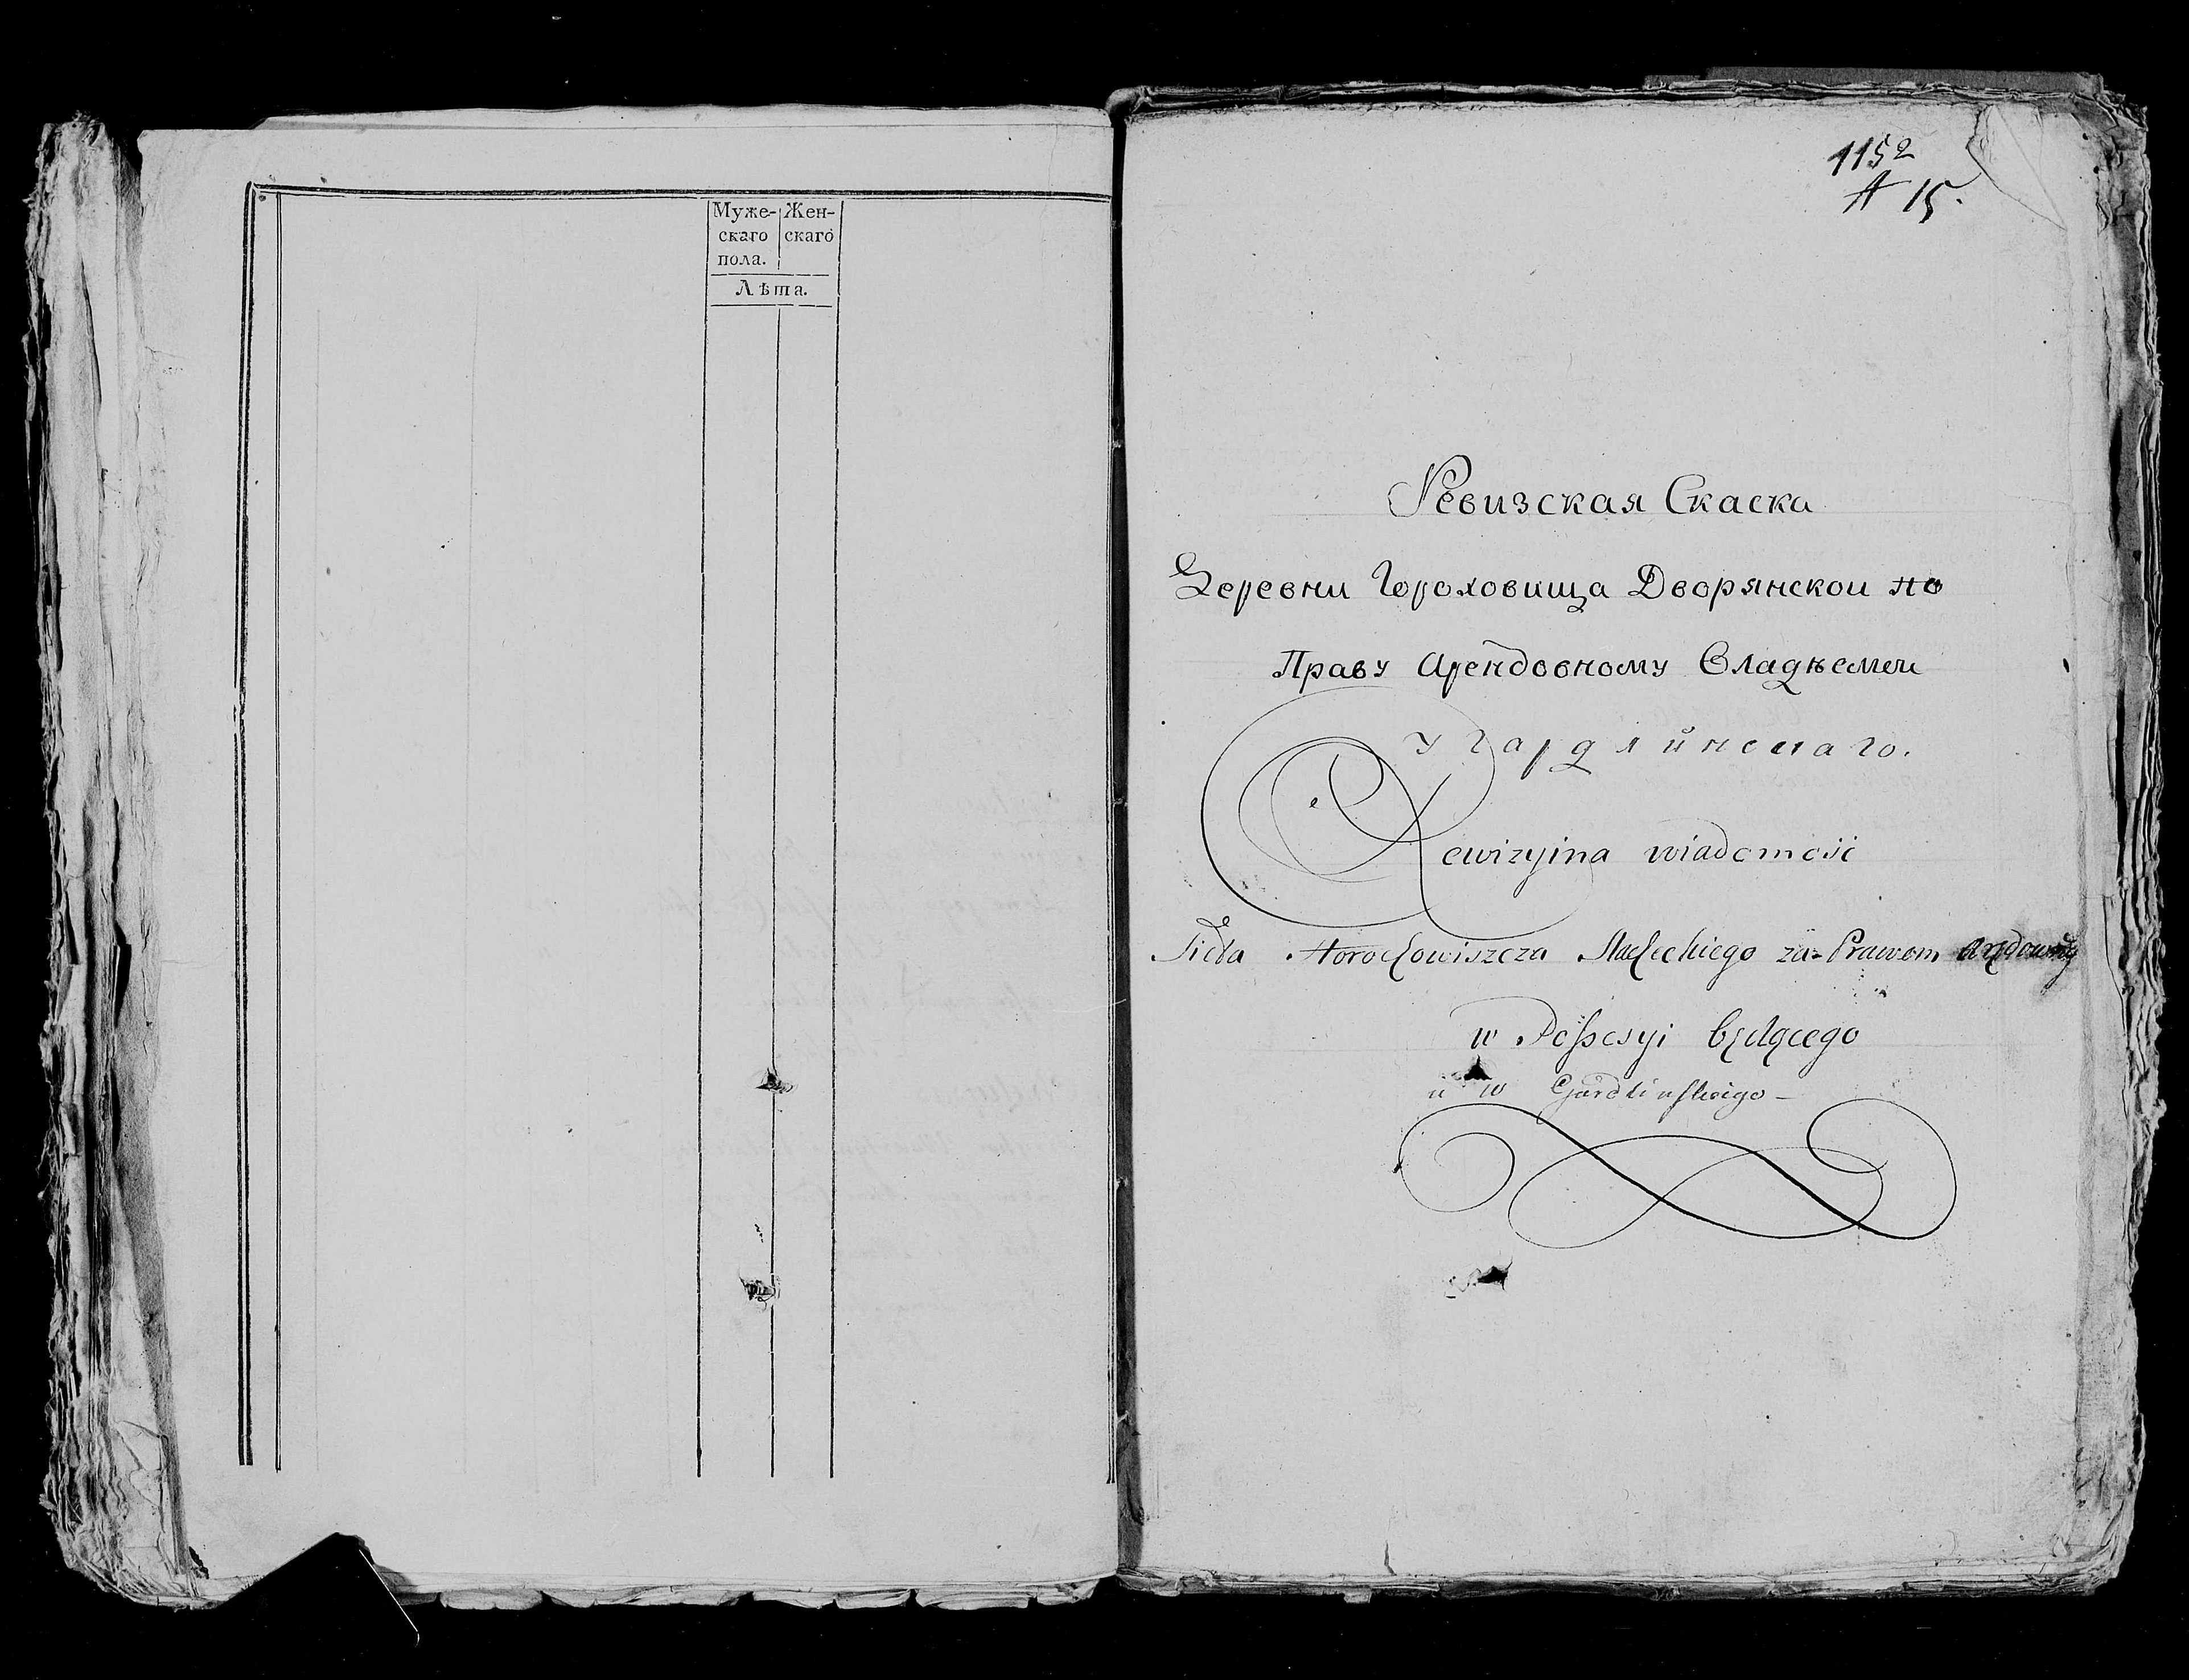 Муже- Жен-
скаго скаго
пола.
Лѣта.
1152
A 15.
Ревизская Скаска
Деревни Гороховища Дворянской по
Праву Арендовному Владѣемой
У Гардлийнскаго.
Rewizyina wiadomość
Sioła Horochowiszcza Szlacheckiego za Prawem Arędownÿ
w Possesyi będącego
u W Gardlinskiego